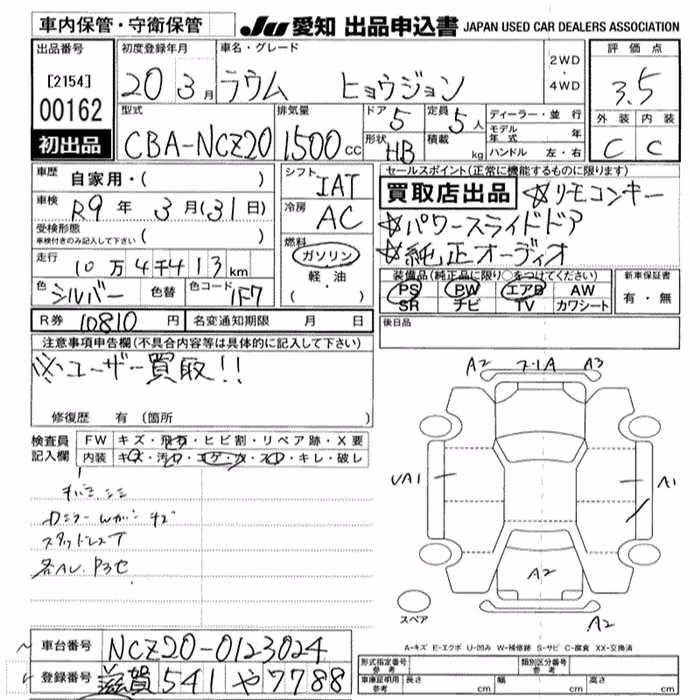 車内保管・守衛保管
JU 愛知 出品申込書 JAPAN USED CAR DEALERS ASSOCIATION
出品番号
[2154]
00162
初出品
初度登録年月
20年3月
車名・グレード
ラウム ヒョウジョン
2WD
・
4WD
評価点
3.5
外装 内装
C C
型式
CBA-NCZ20
排気量
1500cc
ドア
5
定員
5人
形状
HB
積載
kg
ディーラー・並行
モデル年式 年
ハンドル 左・右
車歴
自家用・( )
車検
R9年3月(31日)
受検形態
車検付きのみ記入して下さい
( )
走行
10万4千413km
色
シルバー
色替
色コード
1F7
シフト
IAT
冷房
AC
燃料
ガソリン
・
軽・油
( )
セールスポイント(正常に機能するものに限ります)
買取店出品 ☆リモコンキー
☆パワースライドドア
☆純正オーディオ
装備品(純正品に限り○をつけてください)
PS BW エアB AW
SR ナビ TV カワシート
新車保証書
有・無
R券 10810円 名変通知期限 月 日
後日品
注意事項申告欄(不具合内容等は具体的に記入して下さい)
※ユーザー買取!!
修復歴 有(箇所 )
検査員
記入欄
FW キズ・飛石・ヒビ割・リペア跡・X要
内装 キズ・汚れ・コゲ・穴・スレ・キレ・破レ
スタッドレスT
A2 A A3
UA1
A1
A2
A2
スペア
A-キズ E-エクボ U-凹み W-補修跡 S-サビ C-腐食 XX-交換済
車台番号 NCZ20-0123024
登録番号 滋賀 541 や 7788
形式指定番号
参考
類別区分番号
参考
車庫証明用
参考
長さ cm 幅 cm 高さ cm